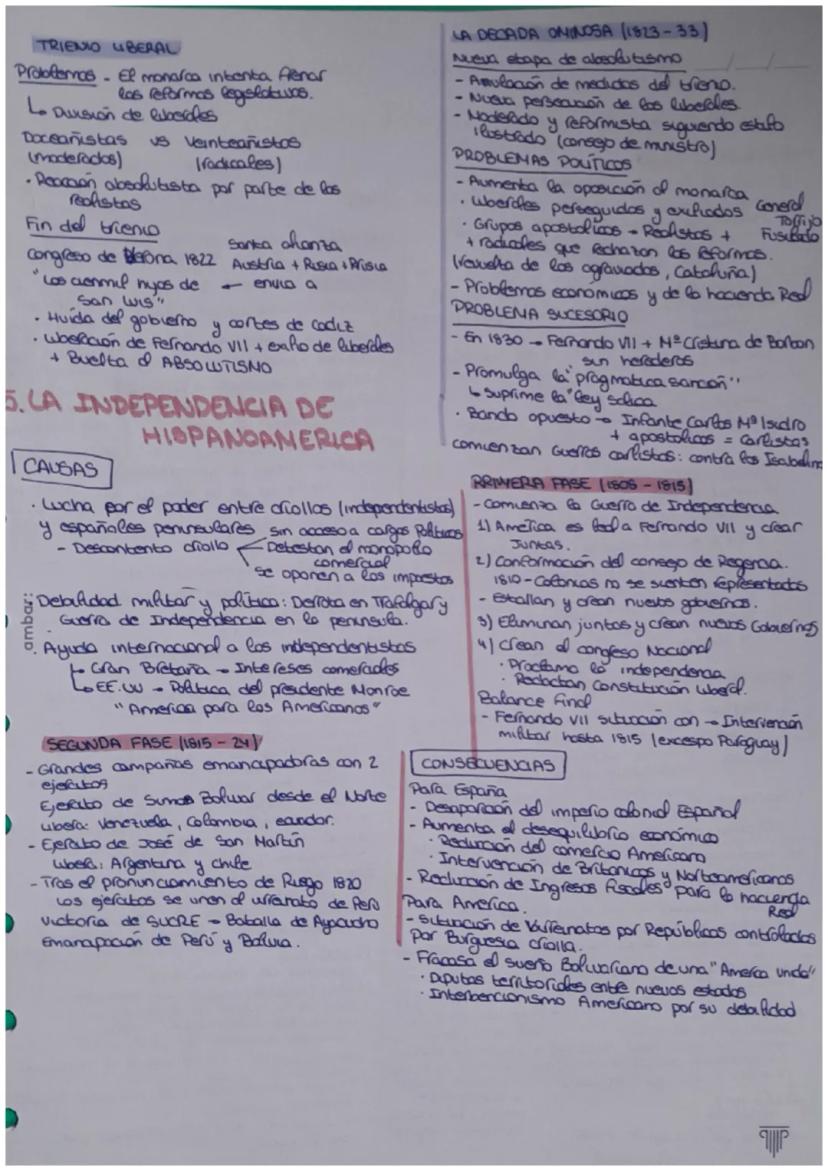 TRIENIO LIBERAL
Problemas - El monarca intenta frenar
las reformas legislativas.
↳ División de liberales
Doceañistas vs Veinteañistas
(moderados) (radicales)
· Reacción absolutista por parte de los
realistas
Fin del trienio
Congreso de Verona 1822 Santa alianza
Austria + Rusia + Prusia
"Los cienmil hijos de ← envia a
San Luis"
· Huida del gobierno y cortes de Cadiz
· Liberación de Fernando VII + exilio de liberales
+ Buelta al ABSOLUTISMO
LA DECADA OMINOSA (1823-33)
Nueva etapa de absolutismo
- Anulación de medidas del trieno.
- Nueva persecución de los liberales
- Moderado y reformista siguiendo estilo
ilustrado (consejo de ministro)
PROBLEMAS POLÍTICOS
- Aumenta la oposición al monarca
· Liberales perseguidos y exiliados General
Torrijo
Fusilado
· Grupos apostolicos → Realistas +
+ radicales que rechazan las reformas.
(revuelta de los agraviados, Cataluña)
- Problemas economicos y de la hacienda Real
PROBLEMA SUCESORIO
- En 1830 → Fernando VII + Mª Cristina de Borbon
sin herederos
- Promulga la "pragmatica sanción"
↳ Suprime la "ley salica
· Bando opuesto → Infante Carlos Mª Isidro
+ apostolicos = carlistas
comienzan Guerras carlistas: contra los Isabelin
5. LA INDEPENDENCIA DE
HISPANOAMERICA
CAUSAS
· Lucha por el poder entre criollos (independentistas)
y españoles peninsulares sin acceso a cargos Políticos
- Descontento criollo Detestan el monopolio
comercial
se oponen a los impuestos
· Debilidad militar y política: Derrota en Trafalgar y
Guerra de Independencia en la península.
ambar::
· Ayuda internacional a los independentistas
↳ Gran Bretaña → Intereses comerciales
↳ EE.UU → Política del presidente Monroe
"America para los Americanos"
PRIMERA FASE (1808 - 1815)
- Comienza la Guerra de Independencia
1) America es leal a Fernando VII y crear
Juntas.
2) Conformación del consejo de Regencia.
1810 - Colonias no se sienten representados
- Estallan y crean nuevos gobiernos.
3) Eliminan juntas y crean nuevos Gobiernos
4) Crean el congreso Nacional
· Proclama la independencia
· Redactan Constitución liberal.
Balance Final
- Fernando VII situación con → Intervención
militar hasta 1815 (excespo Paraguay)
SEGUNDA FASE (1815 - 24)
- Grandes campañas emancipadoras con 2
ejercitos
Ejercito de Simon Bolivar desde el Norte
libera: Venezuela, Colombia, ecuador.
- Ejercito de José de San Martín
libera: Argentina y chile
- Tras el pronunciamiento de Riego 1820
Los ejercitos se unen al virreinato de Perú
Victoria de SUCRE → Batalla de Ayacucho
Emancipación de Perú y Bolivia.
CONSECUENCIAS
Para España
- Desaparición del imperio colonial Español
- Aumenta el desequilibrio económico
· Reducción del comercio Americano
· Intervención de Britanicos y Norteamericanos
- Reducción de Ingresos fiscales para la hacienda
Real
Para America.
- Situación de Virreinatos por Repúblicas controladas
por Burguesia criolla.
- Fracasa el sueño Bolivariano de una "America unida"
· Diputas territoriales entre nuevos estados
· Interbencionismo Americano por su debilidad